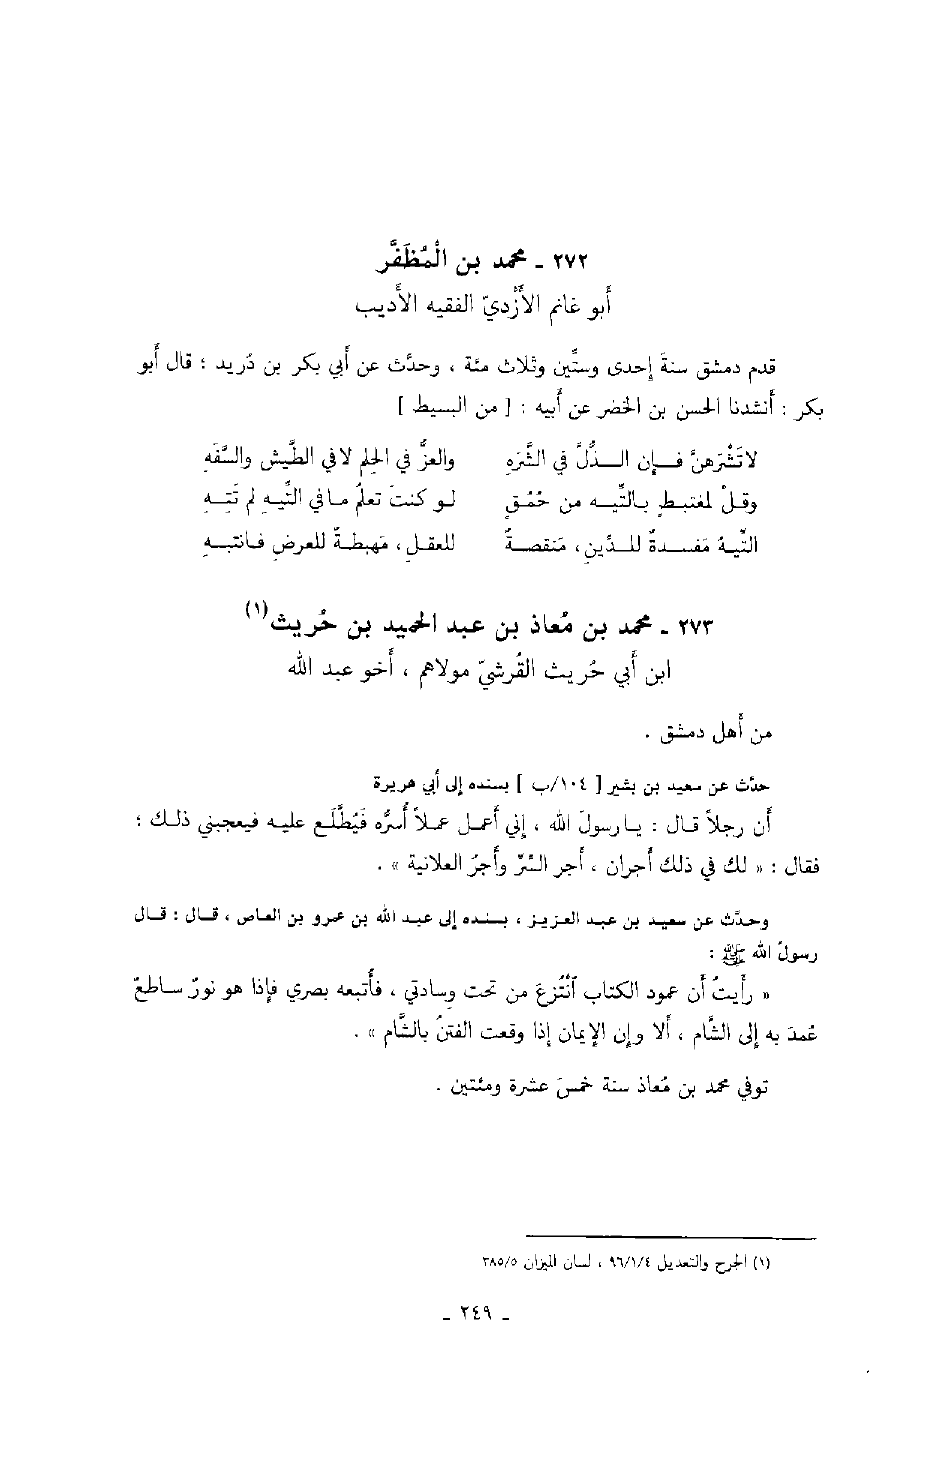 ٢٧٢ ـ محمد بن الْمُظَفَّر
أبو غانم الأَزْديّ الفقيه الأديب
قدم دمشق سنة إحدى وستِّين وثلاث مئة ، وحدَّث عن أبي بكر بن دُريد ؛ قال أبو
بكر : أنشدنا الحسن بن الخضر عن أبيه : [ من البسيط ]
لاتَشْرَهنَّ فإن الذُّلَّ في الشَّرَهِ والعزُّ في الحِلم لا في الطَّيش والسَّفَهِ
وقلْ لمغتبطٍ بالتِّيه من حُمْقٍ لو كنتَ تعلمُ ما في التِّيه لم تَتِه
التِّيهُ مَفسدةٌ للدِّينِ ، مَنقصةٌ للعقلِ ، مَهبطةٌ للعرضِ فانتبه
٢٧٣ ـ محمد بن مُعاذ بن عبد الحميد بن حُريث(١)
ابن أبي حُريث القُرشيّ مولاهم ، أخو عبد الله
من أهل دمشق .
حدَّث عن سعيد بن بشير [ ١٠٤/ب ] بسنده إلى أبي هريرة
أن رجلاً قال : يا رسولَ الله ، إني أعمل عملاً أُسرُّه فَيُطَّلَع عليه فيعجبني ذلك ؛
فقال : « لك في ذلك أجران ، أجر السِّرِّ وأجرُ العلانية » .
وحدَّث عن سعيد بن عبد العزيز ، بسنده إلى عبد الله بن عمرو بن العاص ، قال : قال
رسولُ الله ﷺ :
« رأيتُ أن عمود الكتاب اُنْتُزعَ من تحت وسادتي ، فأتبعه بصري فإذا هو نورٌ ساطعٌ
عُمدَ به إلى الشَّام ، ألا وإن الإيمان إذا وقعت الفتنُ بالشَّام » .
توفي محمد بن مُعاذ سنة خمسَ عشرة ومئتين .
(١) الجرح والتعديل ٩٦/١/٤ ، لسان الميزان ٣٨٥/٥
ـ ٢٤٩ ـ